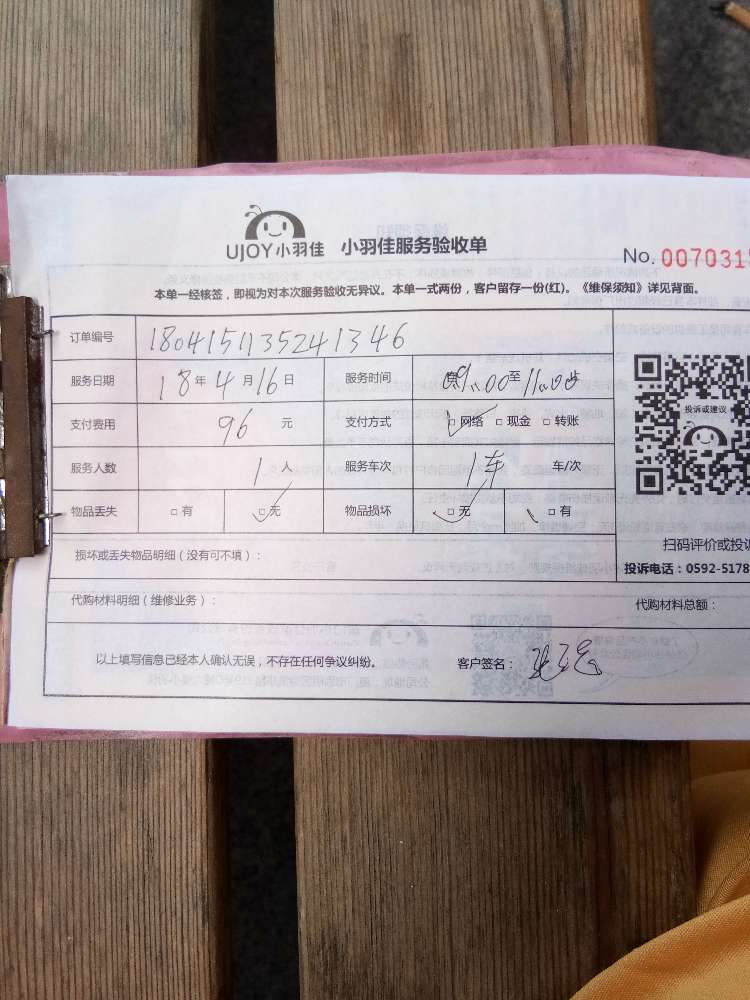 UJOY小羽佳 小羽佳服务验收单
No. 007031
本单一经核签，即视为对本次服务验收无异议。本单一式两份，客户留存一份(红)。《维保须知》详见背面。
订单编号 1804151135241346
服务日期 18年4月16日 服务时间 9:00至11:00
支付费用 96元 支付方式 □网络 □现金 □转账
服务人数 1人 服务车次 1车 车/次
物品丢失 □有 □无 物品损坏 □无 □有
投诉或建议
扫码评价或投诉
投诉电话：0592-5178
损坏或丢失物品明细（没有可不填）：
代购材料明细（维修业务）： 代购材料总额：
以上填写信息已经本人确认无误，不存在任何争议纠纷。 客户签名：